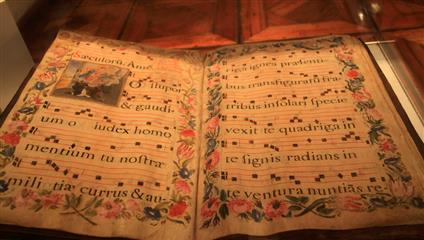 Sæculorū. Ame
O stupor
& gaudi
um o Iudex homo
mentium tu nostræ
militiæ currus & au
riga ignea præsenti
bus transfiguratū fra
tribus insolari specie
vexit te quadriga in
te signis radians in
te ventura nuntiās re